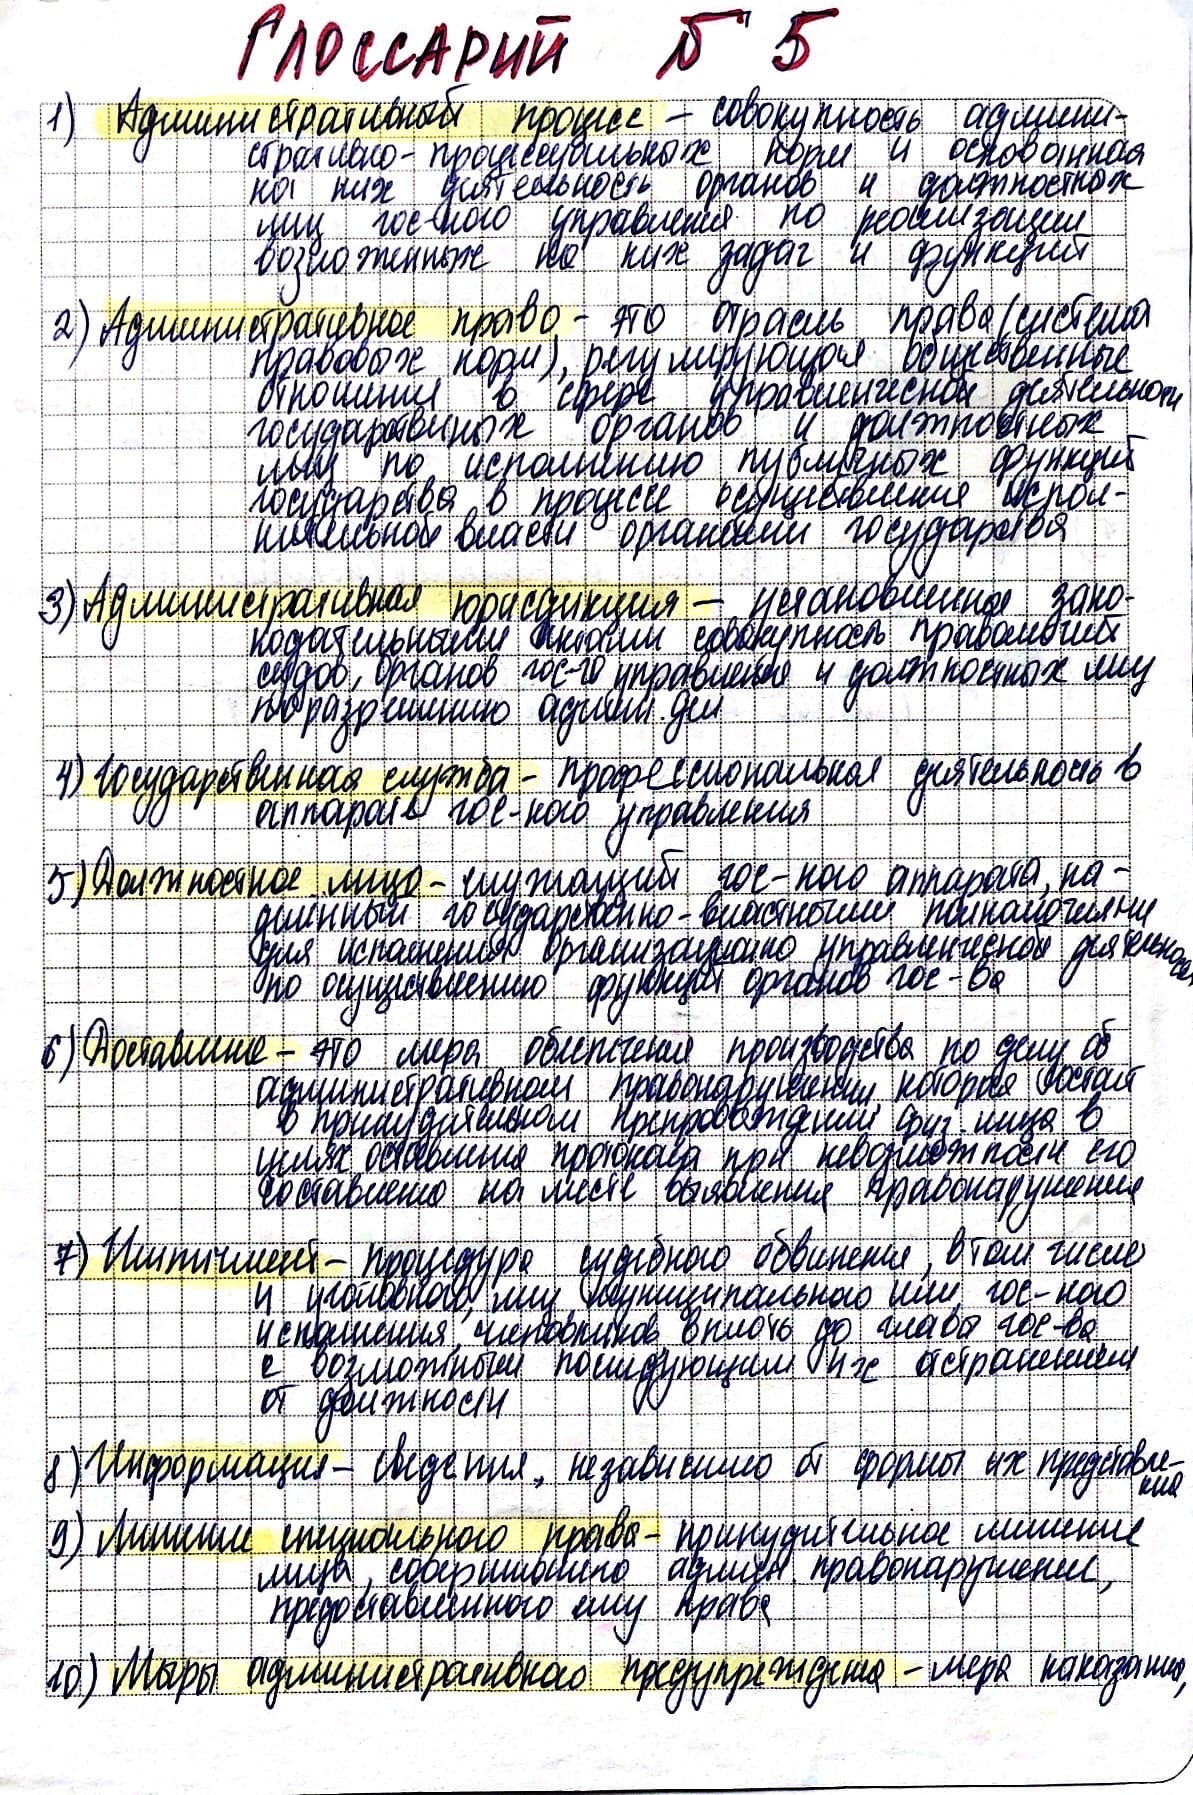 Глоссарий № 5
1) Административный процесс – совокупность админи-
стративно-процессуальных норм и основанная
на них деятельность органов и должностных
лиц гос-ного управления по реализации
возложенных на них задач и функций
2) Административное право – это отрасль права (система
правовых норм), регулирующая общественные
отношения в сфере управленческой деятельности
государственных органов и должностных
лиц по исполнению публичных функций
государства в процессе осуществления испол-
нительной власти органами государства
3) Административная юрисдикция – установленная зако-
нодательными актами совокупность правомочий
судов, органов гос-го управления и должностных лиц
по разрешению админ. дел
4) Государственная служба – профессиональная деятельность в
аппарате гос-ного управления
5) Должностное лицо – служащий гос-ного аппарата, на-
деленный государственно-властными полномочиями
для исполнения организационно управленческой деятельности
по осуществлению функций органов гос-ва
6) Доставление – это мера обеспечения производства по делу об
административном правонарушении которая состоит
в принудительном препровождении физ. лица в
целях оставления протокола при невозможности его
составления на месте выявления правонарушения
7) Импичмент – процедура судебного обвинения, в том числе
и уголовного, лиц муниципального или гос-ного
исполнения, чиновников вплоть до главы гос-ва
с возможным последующим их отстранением
от должности
8) Информация – сведения, независимо от формы их представле-
ния
9) Лишение специального права – принудительное лишение
лица, совершившего админ. правонарушение,
предоставленного ему права
10) Меры административного предупреждения – мера наказания,